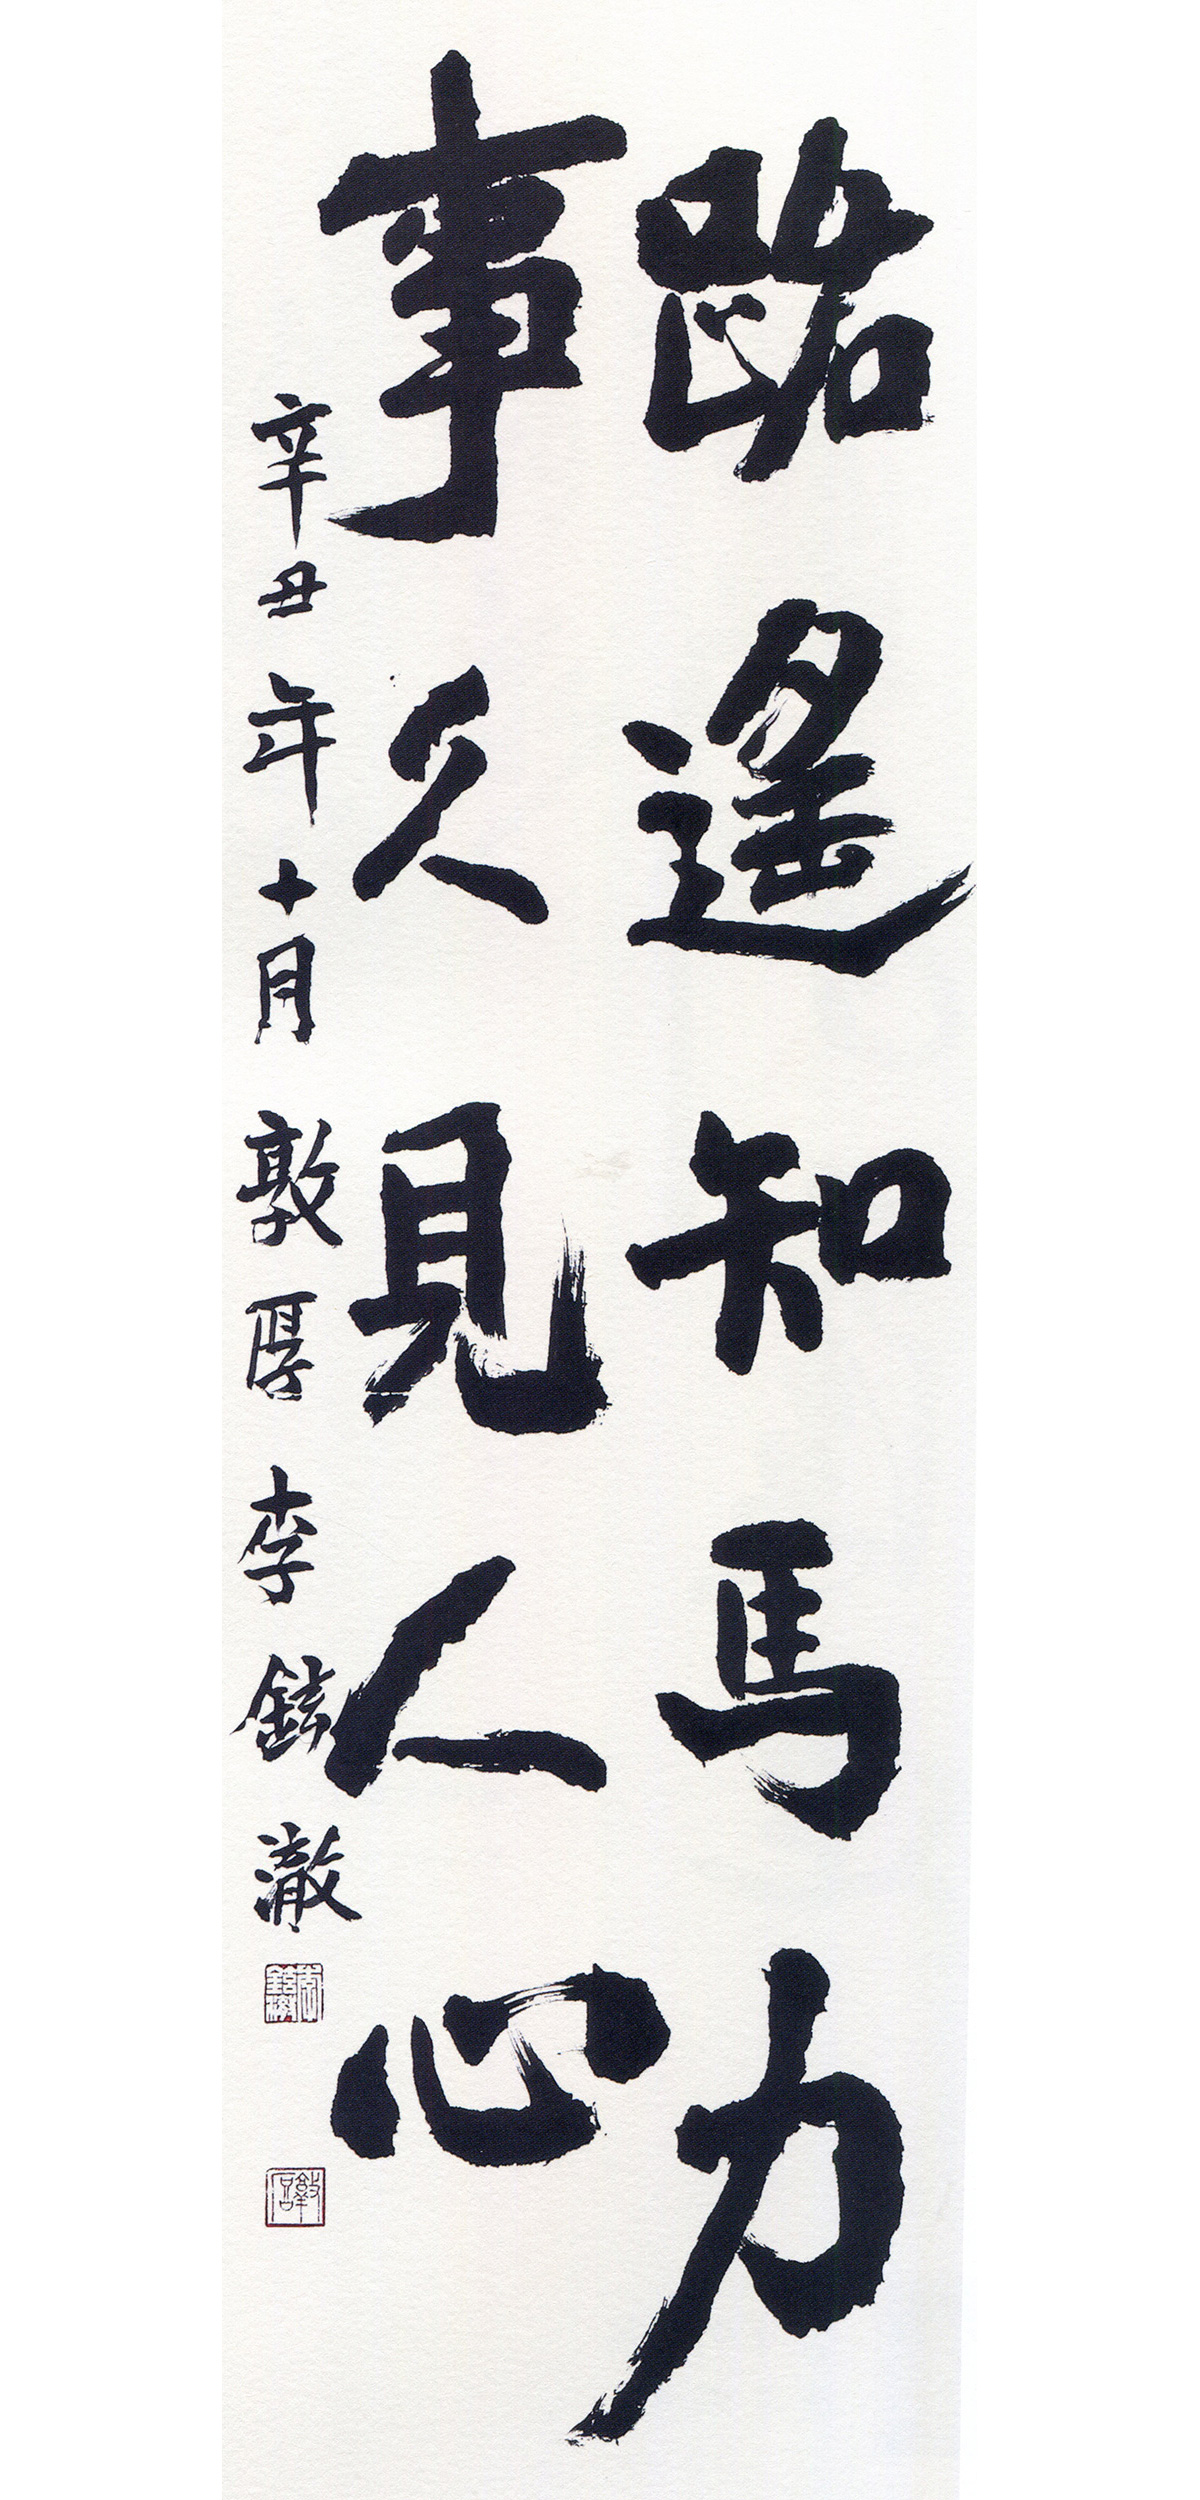 路遙知馬力
事久見人心
辛丑年十月 敦厚 李鉉澈